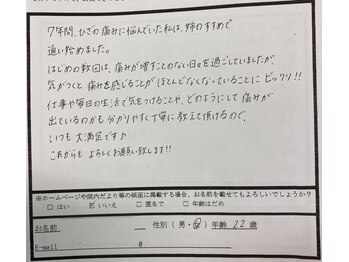 7年間、ひざの痛みに悩んでいた私は、姉のすすめで
通い始めました。
はじめの数回は、痛みが増すことのない日々を過ごしていましたが
気がつくと痛みを感じることがほとんどなくなっていることにビックリ!!
仕事や毎日の生活で気をつけることや、どのようにして痛みが
出ているのかも分かりやすく丁寧に教えて頂けるので、
いつも大満足です♪
これからもよろしくお願い致します!!
※ホームページや院内だより等の紙面に掲載する場合、お名前を載せてもよろしいでしょうか?
□はい ☑いいえ □匿名で □年齢はだめ
お名前 性別(男・女)年齢 22 歳
E-mail @